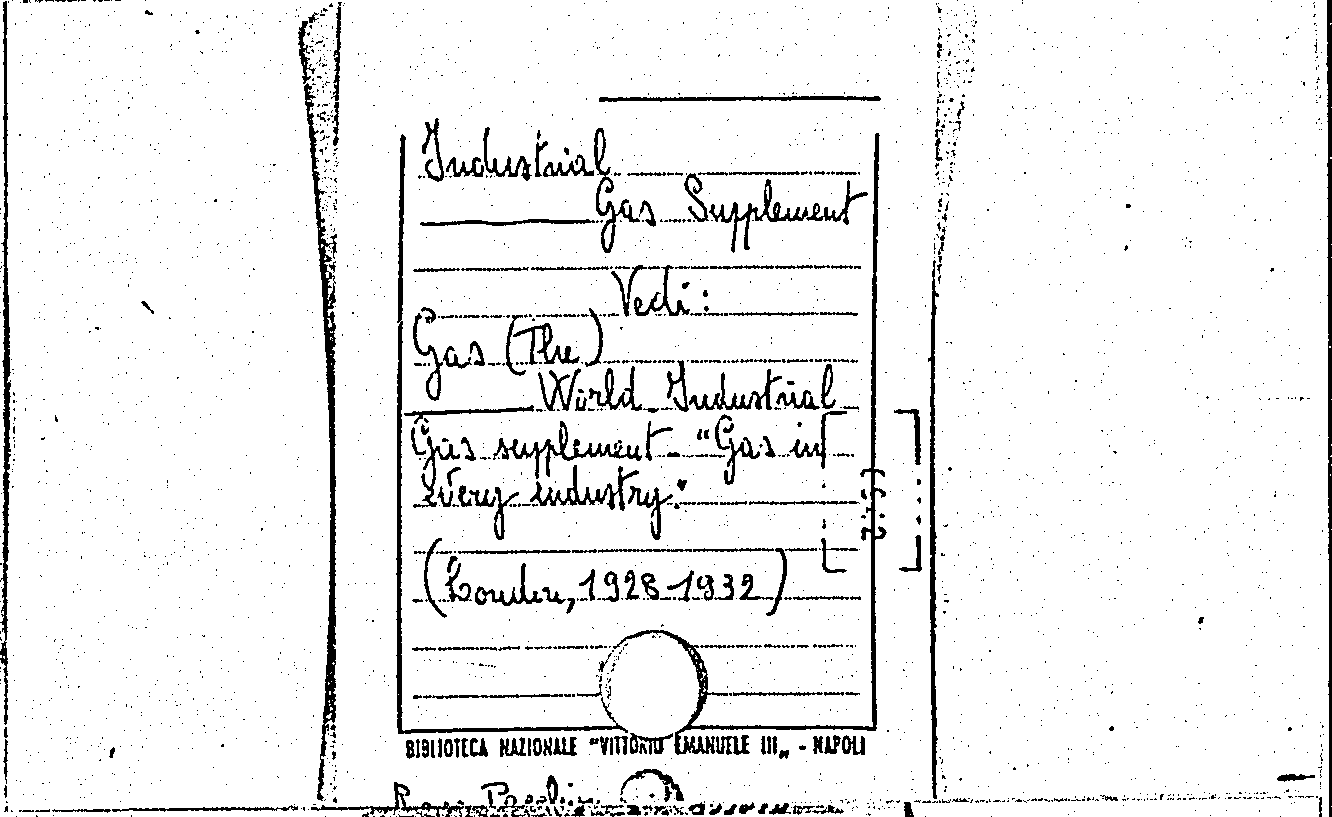 Industrial
Gas Supplement
Vedi:
Gas (The)
World Industrial
Gas supplement - "Gas in
every industry."
(London, 1928-1932)
BIBLIOTECA NAZIONALE "VITTORIO EMANUELE III„ - NAPOLI